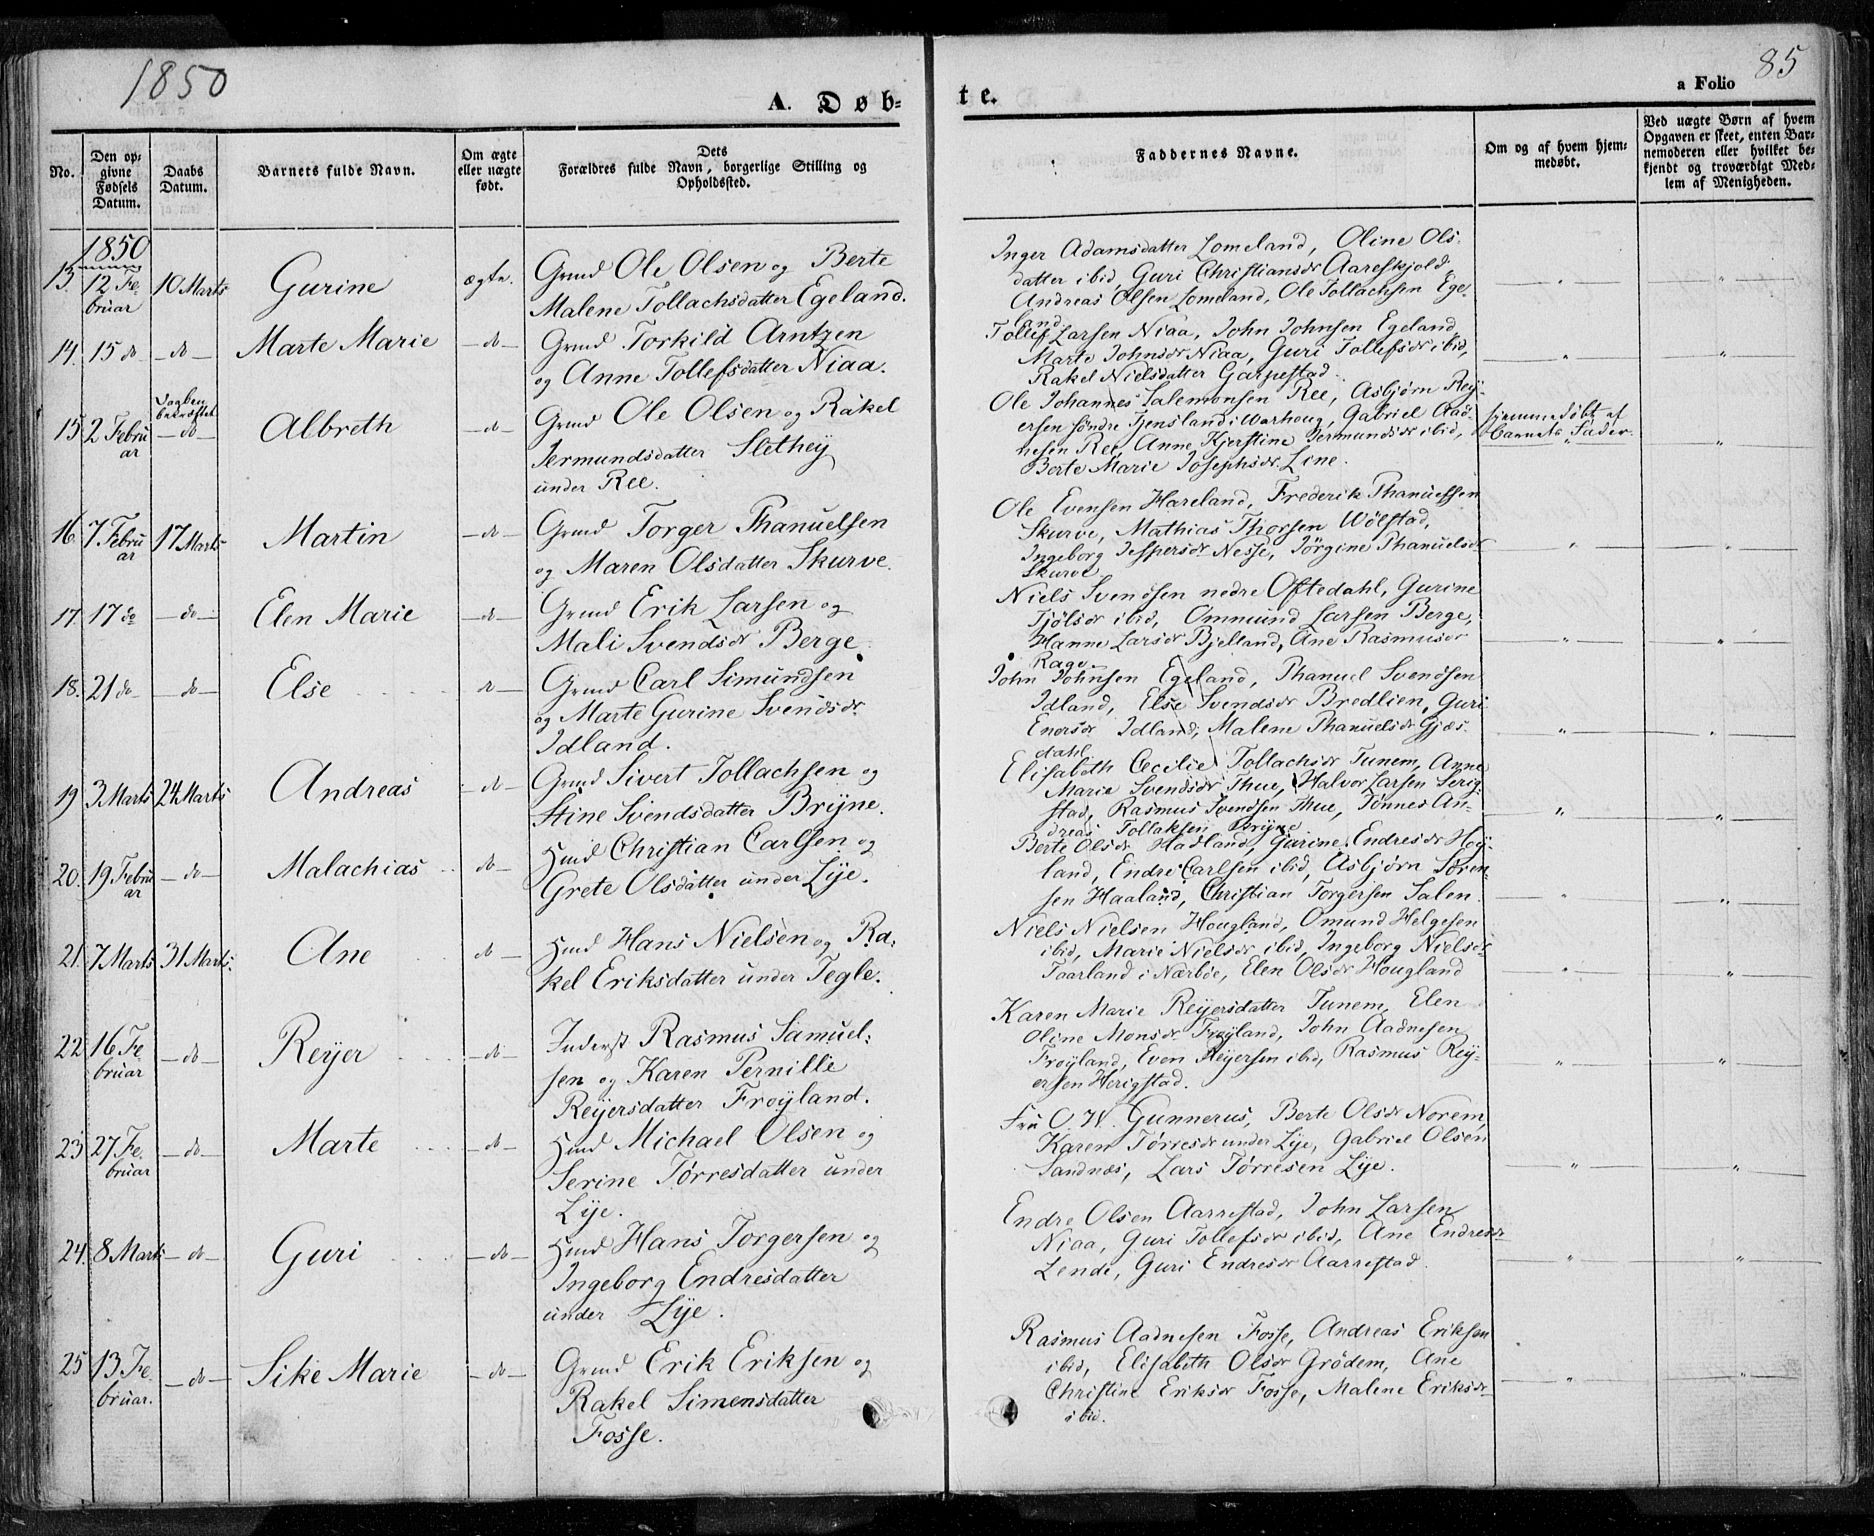 1850
85
A. Døb-
te.
a Folio
No.
Den op-
givne
Fødsels
Datum.
Daabs
Datum.
Barnets fulde Navn.
Om ægte
eller uægte
født.
Dets
Forældres fulde Navn, borgerlige Stilling og
Opholdssted.
Faddernes Navne.
Om og af hvem hjem-
medøbt.
Ved uægte Børn af hvem
Opgaven er skeet, enten Bar-
nemoderen eller hvilket be-
kjendt og troværdigt Med-
lem af Menigheden.
1850
13. 12 Fe-
bruar
10 Marts
Gurine
ægte.
Grmd Ole Olsen og Berte
Malene Tollachsdatter Egeland.
Inger Adamsdatter Lomeland, Oline Ols-
datter ibid, Guri Christiansdr Aareskjold
Andreas Olsen Lomeland, Ole Tollachsen Ege-
land
14. 15 do
-do-
Marte Marie
-do-
Grmd Torkild Arntzen
og Anne Tollefsdatter Niaa.
Tollef Larsen Niaa, John Johnsen Egeland,
Marte Johnsdr Niaa, Guri Tollefsdr ibid,
Rakel Nielsdatter Garpestad.
15. 2 Febru
ar
Daaben
bekræftet
-do-
Albreth
-do-
Grmd Ole Olsen og Rakel
Jermundsdatter Slethey
under Ree.
Ole Johannes Salemonsen Ree, Asbjørn Rey-
ersen søndre Tjensland i Warhoug, Gabriel Aad-
nesen Ree, Anne Kjerstine Jermundsdr ibid,
Berte Marie Josephsdr Line.
hjemmedøbt af
barnets Fader.
16. 7 Febru
ar
17 Marts
Martin
-do-
Grmd Torger Thanuelsen
og Maren Olsdatter Skurve.
Ole Evensen Hareland, Frederik Thanuelsen
Skurve, Mathias Thorsen Wølstad,
Ingeborg Jespersdr Nesse, Jørgine Thanuelsdr
Skurve
17. 17 do
-do-
Elen Marie
-do-
Grmd Erik Larsen og
Mali Svendsdr Berge
Niels Svendsen nedre Oftedahl, Gurine
Tjølsdr ibid, Ommund Larsen Berge,
Hanne Larsdr Bjelland, Ane Rasmusdr
Rage
18. 21 do
-do-
Else
do-
Grmd Carl Simundsen
og Marte Gurine Svendsdr
Idland.
John Johnsen Egeland, Thanuel Svendsen
Idland, Else Svendsdr Bredlien, Guri
Enersdr Idland, Malene Thanuelsdr Gjæs-
dahl
19. 3 Marts
24 Marts
Andreas
-do-
Grmd Sivert Tollachsen og
Stine Svendsdatter Bryne.
Elisabeth Cecilie Tollachsdr Tunem, Anne
Marie Svendsdr Thue, Halvor Larsen Serig-
stad, Rasmus Svendsen Thue, Tønnes An-
dreas Tollaksen Bryne
20. 19 Febru
ar
-do-
Malachias
do-
Hmd Christian Carlsen og
Grete Olsdatter under Lye.
Berte Olsdr Hadland, Gurine Endresdr Høy-
land, Endre Carlsen ibid, Asbjørn Søren-
sen Haaland, Christian Torgersen Salen.
21. 7 Marts
31 Marts.
Ane
do-
Hmd Hans Nielsen og Ra-
kel Eriksdatter under Tegle.
Niels Nielsen Hougland, Omund Helgesen
ibid, Marie Nielsdr ibid, Ingeborg Nielsdr
Taarland i Nærbøe, Elen Olsdr Hougland
22 16 Fe-
bruar
-do-
Reyer
-do-
Inderst Rasmus Samuel-
sen og Karen Pernille
Reyersdatter Frøyland.
Karen Marie Reyersdatter Tunem, Elen
Oline Monsdr Frøyland, John Aadnesen
Frøyland, Even Reyersen ibid, Rasmus Rey-
ersen Herigstad.
23 27 Fe-
bruar
-do-
Marte
-do-
Hmd Michael Olsen og
Serine Tørresdatter under
Lye.
Fru O. W. Gunnerus, Berte Olsdr Norem,
Karen Tørresdr under Lye, Gabriel Olsen
Sandnæs, Lars Tørresen Lye.
24. 8 Marts
-do-
Guri
-do-
Hmd Hans Torgersen og
Ingeborg Endresdatter
under Lye.
Endre Olsen Aarrestad, John Larsen
Niaa, Guri Tollefsdr ibid, Ane Endresdr
Lende, Guri Endresdr Aarrestad.
25 13 Fe-
bruar.
-do-
Sike Marie
-do-
Grmd Erik Eriksen og
Rakel Simensdatter
Fosse.
Rasmus Aadnesen Fosse, Andreas Eriksen
ibid, Elisabeth Olsdr Grødem, Ane
Christine Eriksdr Fosse, Malene Eriksdr
ibid.